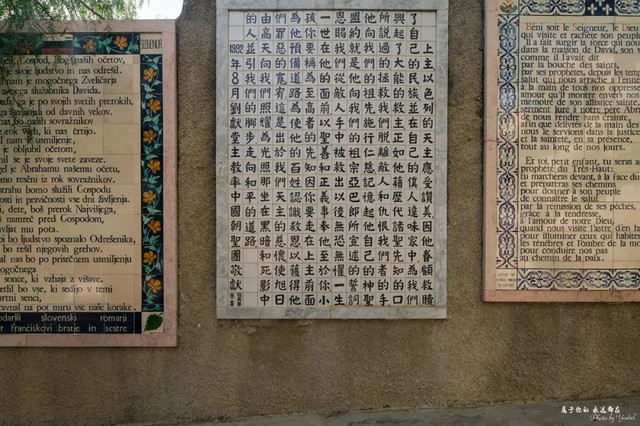 SLOVENIJA
Gospod, Bog naših očetov,
je svoje ljudstvo in nas odrešil.
nam je mogočnega Zveličarja
svojega služabnika Davida.
ga po svojih svetih prerokih,
davnih vekov.
nas rok vseh, ki nas črtijo.
nam je usmiljenje,
je obljubil očetom,
se je svoje svete zaveze.
Abrahamu našemu očetu,
rešeni iz rok sovražnikov.
strahu bomo služili Gospodu
in pravičnosti vse dni življenja.
dete, boš prerok Najvišjega,
namreč pred Gospodom,
pot.
bo ljudstvo spoznalo Odrešenika,
bo rešil njegovih grehov.
nas bo po prisrčnem usmiljenju
mogočnega
sonce, ki vzhaja z višave.
bo vse, ki sedijo v temi
smrtni senci,
na pot miru vse naše korake.
slovenski romarji
frančiškovi bratje in sestre
上主以色列的天主應受讚美因他眷顧救贖
了自己的民族並在自己的僕人達味家中為我們
興起了大能的救主正如他藉歷代諸聖先知的口
所說過的拯救我們脫離敵人和仇恨我們者的手
他向我們的祖先施行仁慈記憶起他自己的神聖
盟約就是他向我們的祖宗亞巴郎所宣述的誓詞
恩賜我們從敵人手中被救出以後無恐無懼一生
一世在他的面前以聖善和正義事奉他至於你小
孩你要稱為至高者的先知因你要走在上主前面
為他預備道路為使他的百姓認識救恩以獲得他
們罪惡的寬宥這是出於我們天主的慈懷使旭日
由高天向我們照耀為光照那坐在黑暗和死影中
的人並引我們的腳步走向和平的道路
1992年8月劉獻堂主教率中國朝聖團敬獻
Béni soit le Seigneur, le Dieu
qui visite et rachète son peuple
Il a fait surgir la force qui nous
dans la maison de David, son
comme il l'avait dit
par la bouche des saints,
par ses prophètes, depuis les
salut qui nous arrache à l'ennemi
à la main de tous nos oppresseurs
amour qu'il montre envers nos
mémoire de son alliance sainte,
serment juré à notre père
de nous rendre sans crainte,
afin que délivrés de la main des
nous le servions dans la justice
et la sainteté, en sa présence,
tout au long de nos jours.
Et toi, petit enfant, tu seras
prophète du Très-Haut:
tu marcheras devant, à la face du
et prépareras ses chemins
pour donner à son peuple
de connaître le salut
par la rémission de ses péchés,
grâce à la tendresse,
à l'amour de notre Dieu,
quand nous visite l'astre d'en
pour illuminer ceux qui habitent
les ténèbres et l'ombre de la mort
pour conduire nos pas
au chemin de la paix.
属于你们 永远都在
Photo by